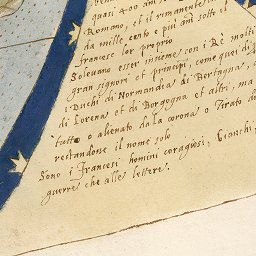 quasi 400 anni sotto il
Romano, et il rimanente
da mille cento e più anni sotto il
francese lor proprio
Solevano esser insieme con i Rè molti
gran signori et principi, come quei di
i Duchi di Normandia di Bertagna,
di Lorena et di Borgogna et altri, ma
tutto o alienato da la corona o
restandone il nome solo
Sono i francesi homini coragiosi,
guerre che alle lettere.